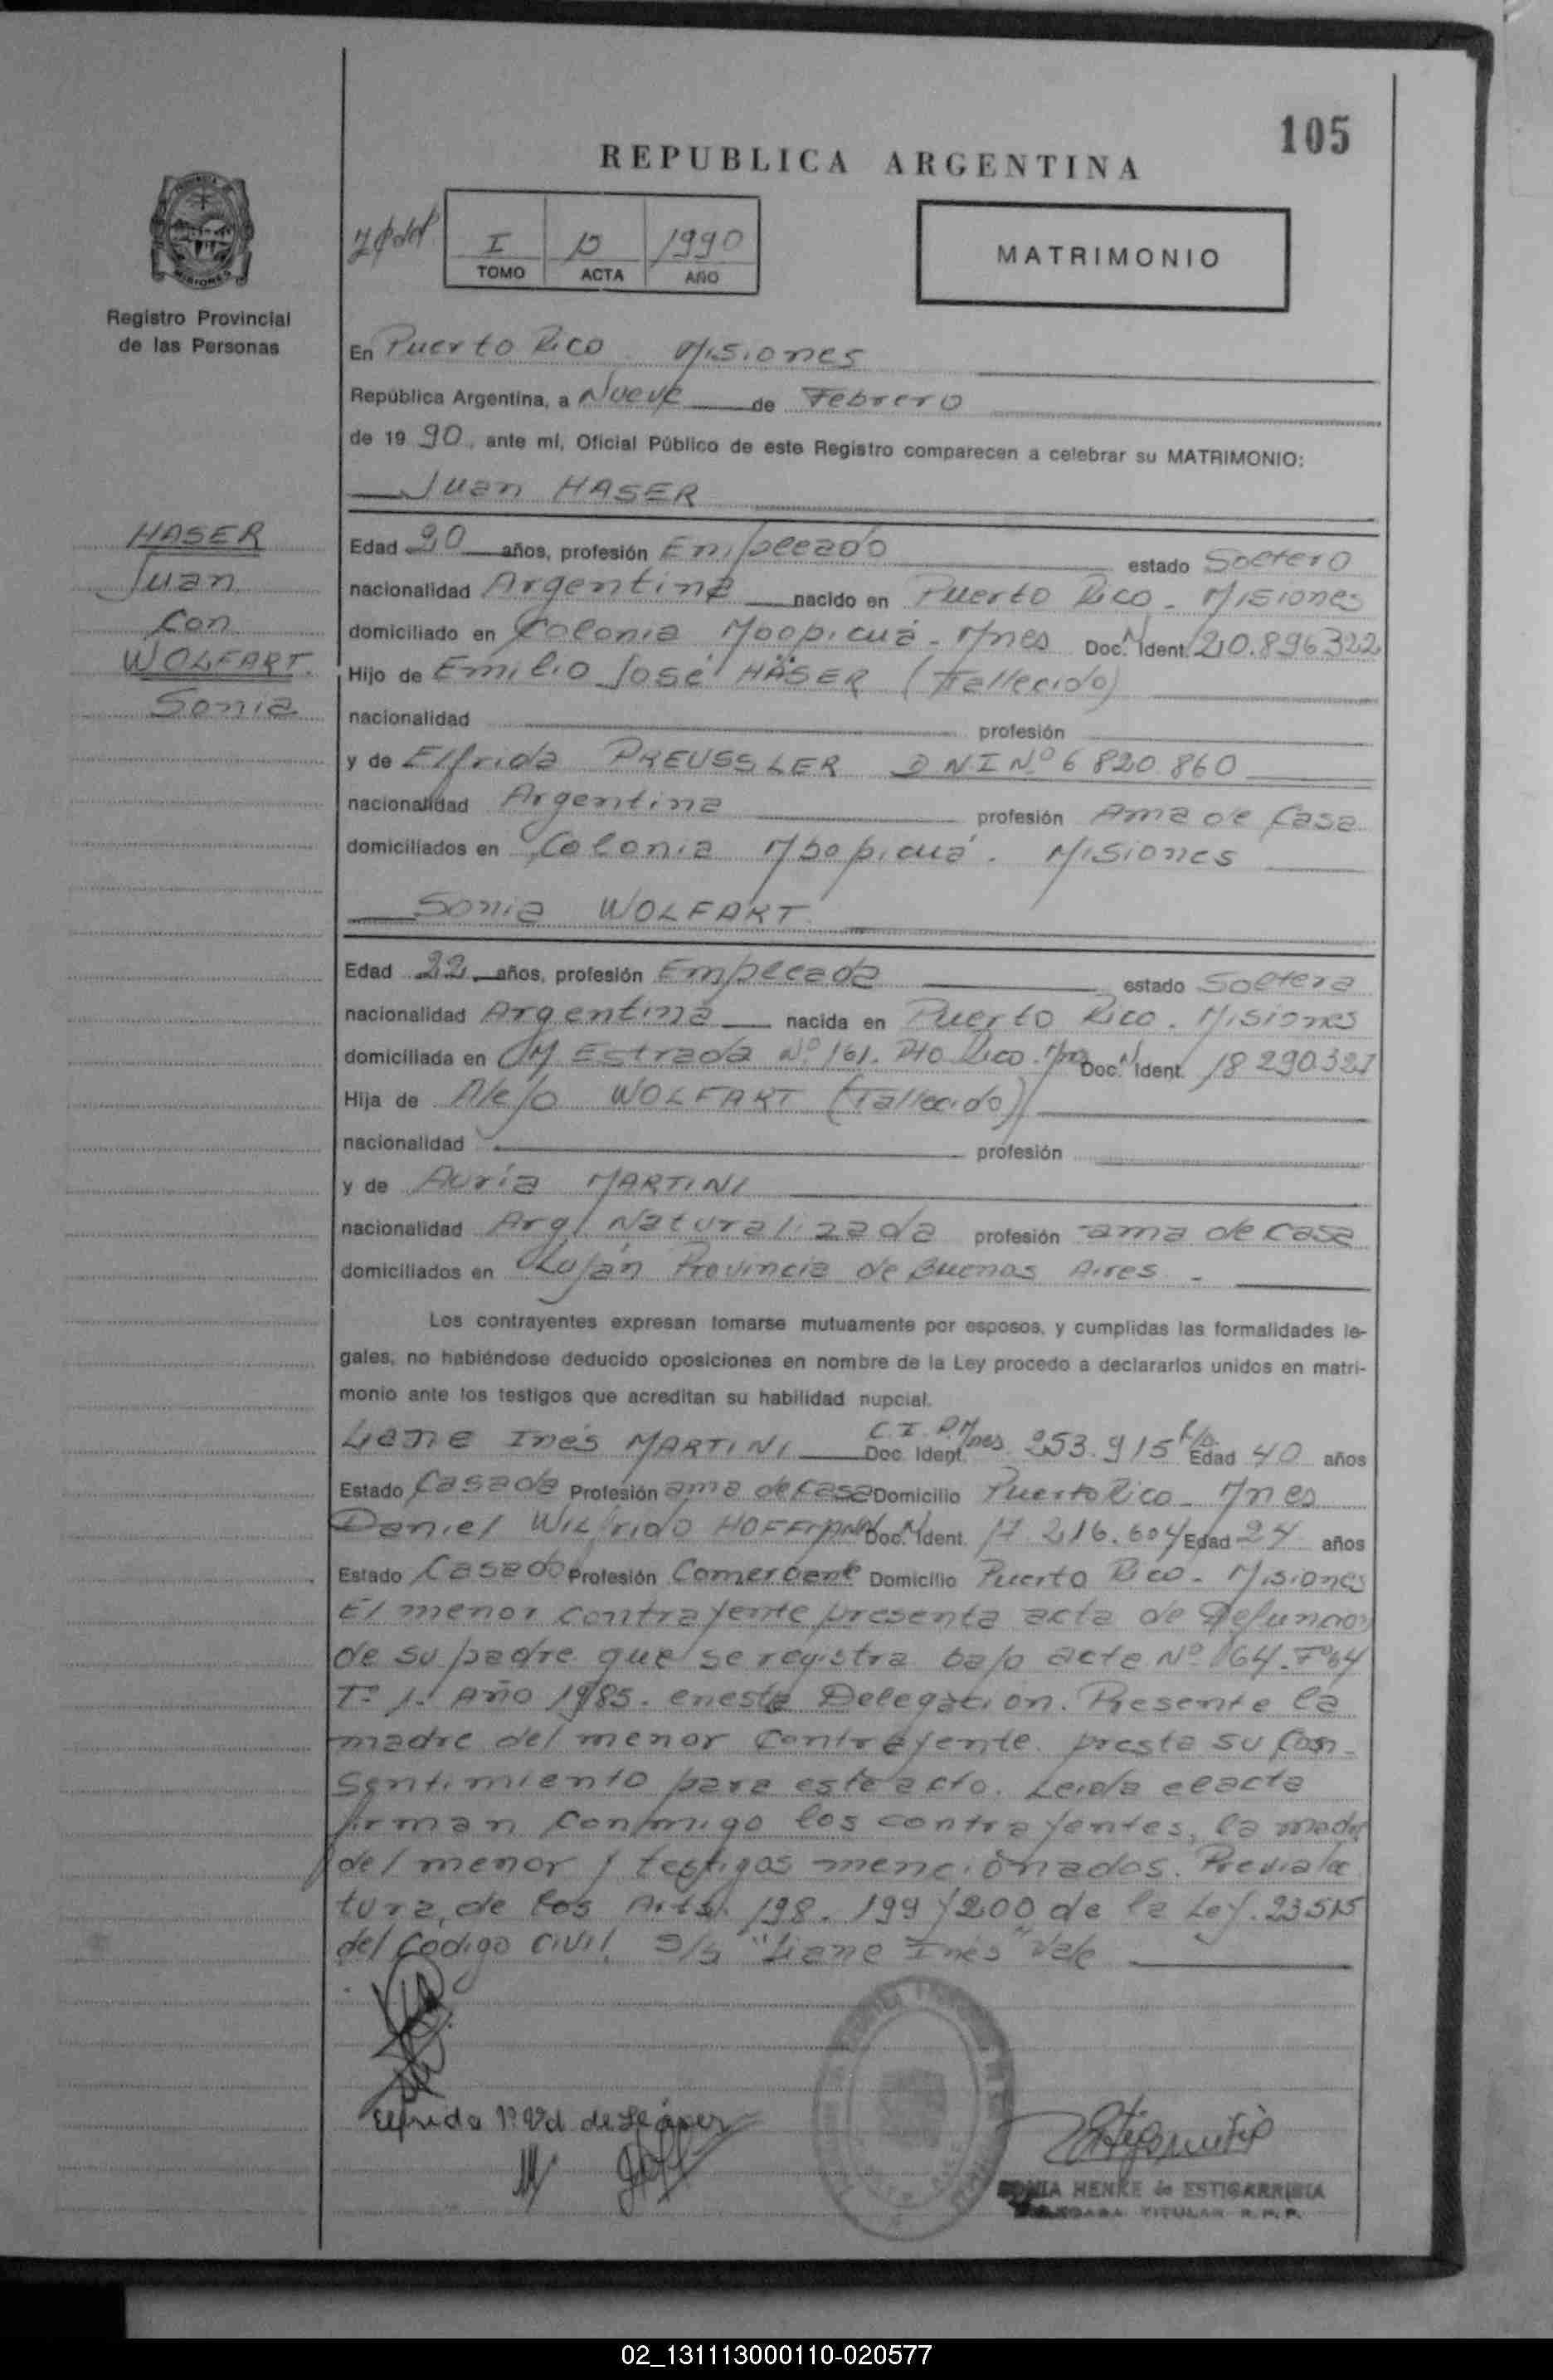 105
REPUBLICA ARGENTINA
I 13 1990
TOMO ACTA AÑO
MATRIMONIO
MISIONES
Registro Provincial
de las Personas
En Puerto Rico Misiones
República Argentina, a Nueve de Febrero
de 1990, ante mí, Oficial Público de este Registro comparecen a celebrar su MATRIMONIO:
Juan HASER
HASER
Juan
Con
WOLFART.
Sonia
Edad 20 años, profesión Empleado estado Soltero
nacionalidad Argentina nacido en Puerto Rico - Misiones
domiciliado en Colonia Mbopicuá - Mnes Doc. N Ident. 20.896322
Hijo de Emilio José HÄSER (Fallecido)
nacionalidad profesión
y de Elfrida PREUSSLER DNI Nº 6 820.860
nacionalidad Argentina profesión Ama de Casa
domiciliados en Colonia Mbopicuá. Misiones
Sonia WOLFART.
Edad 22 años, profesión Empleada estado Soltera
nacionalidad Argentina nacida en Puerto Rico. Misiones
domiciliada en M Estrada Nº 161. Pto Rico. Doc. N Ident. 18 290.321
Hija de Alejo WOLFART (Fallecido)
nacionalidad profesión
y de Auria MARTINI
nacionalidad Arg. Naturalizada profesión ama de casa
domiciliados en Luján Provincia de Buenos Aires -
Los contrayentes expresan tomarse mutuamente por esposos, y cumplidas las formalidades le-
gales, no habiéndose deducido oposiciones en nombre de la Ley procedo a declararlos unidos en matri-
monio ante los testigos que acreditan su habilidad nupcial.
Liane Inés MARTINI C.I.P.Mnes Doc. Ident. 253.915 Edad 40 años
Estado Casada Profesión ama de casa Domicilio Puerto Rico - Mnes
Daniel Wilfrido HOFFMANN Doc. N Ident. 17.216.604 Edad 24 años
Estado Casado Profesión Comerciante Domicilio Puerto Rico - Misiones
El menor contrayente presenta acta de Defuncion
de su padre que se registra bajo acta Nº 64. Fº 64
Tº 1. Año 1985. en esta Delegación. Presente la
madre del menor contrayente presta su Con-
sentimiento para este acto. Leida el acta
firman conmigo los contrayentes, la madre
del menor y testigos mencionados. Previa lec
tura, de los Arts. 198. 199 y 200 de la Ley. 23515
del Codigo Civil. S/S "Liane Inés" Vale
Elfrida P. Vd. de
SONIA HENKE de ESTIGARRIBIA
TITULAR R.P.P.
02_131113000110-020577